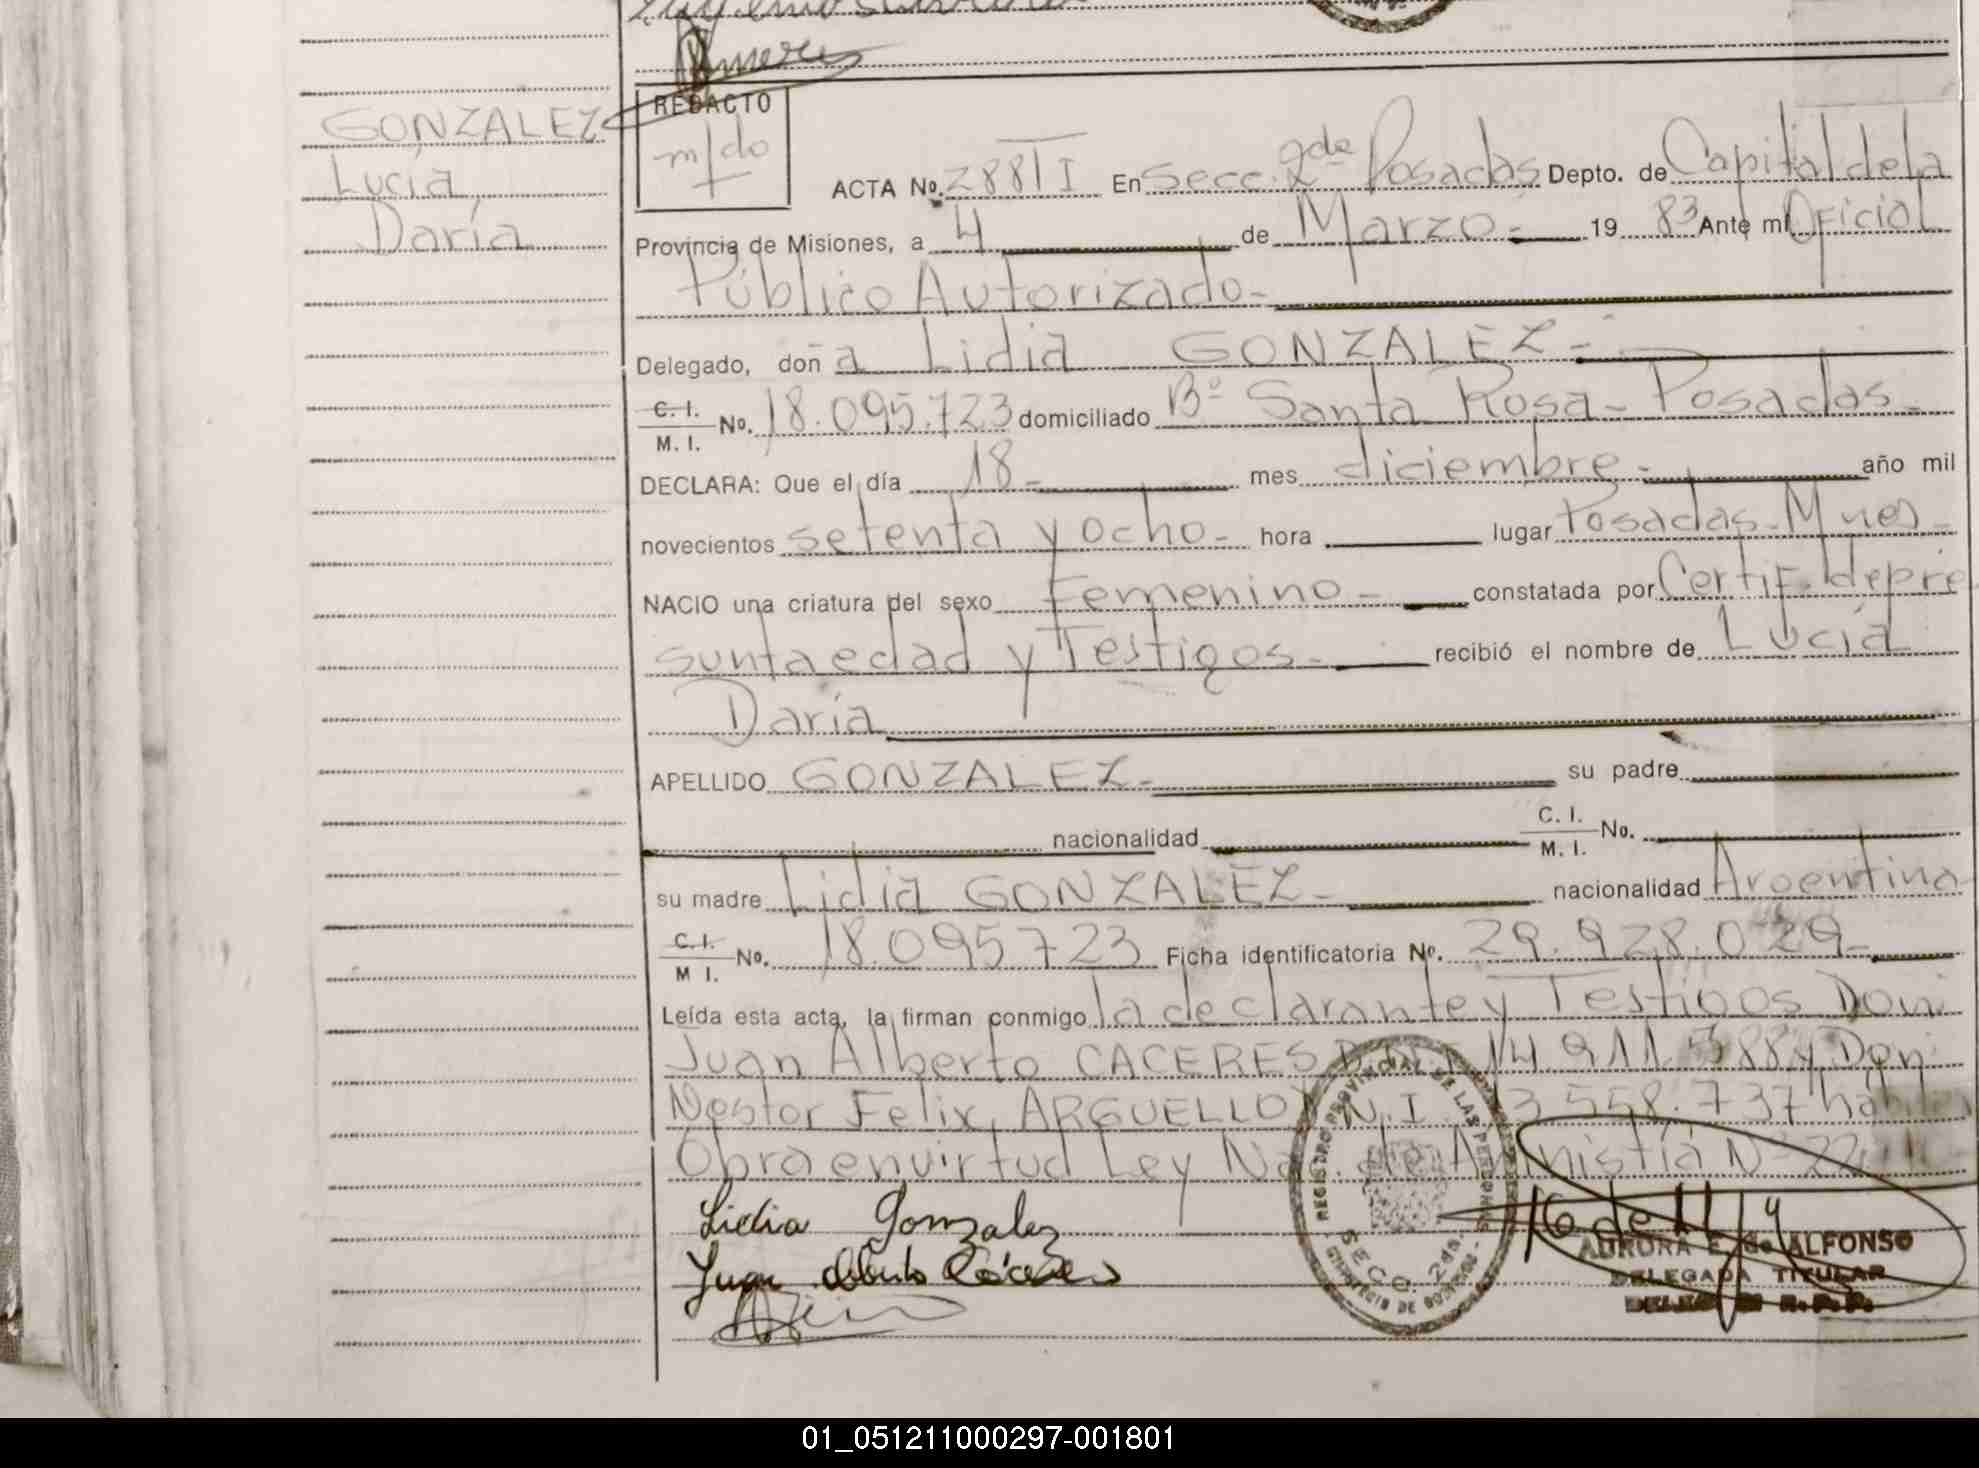 GONZALEZ
Lucía
Daría
REDACTO
m/do
ACTA No. 288 T I En Secc. 2da Posadas Depto. de Capital de la
Provincia de Misiones, a 4 de Marzo - 19 83 Ante mí Oficial
Público Autorizado -
Delegado, doña Lidia GONZALEZ -
C. I.
M. I. No. 18.095.723 domiciliado Bº Santa Rosa - Posadas -
DECLARA: Que el día 18 - mes diciembre - año mil
novecientos setenta y ocho - hora lugar Posadas - Mnes -
NACIO una criatura del sexo Femenino - constatada por Certif. de pre
sunta edad y Testigos - recibió el nombre de Lucía
Daría
APELLIDO GONZALEZ - su padre
nacionalidad C. I.
M. I. No.
su madre Lidia GONZALEZ - nacionalidad Argentina
C. I.
M I. No. 18.095723 Ficha identificatoria No. 29.928.029 -
Leída esta acta, la firman conmigo la declarante y Testigos Don:
Juan Alberto CACERES 14.911.388 y Don:
Nestor Felix ARGUELLO N.I. 13.558.737 hábiles
Obra en virtud Ley Nac. de Amnistia Nº 22
Lidia Gonzalez
Juan Alberto Cáceres
REGISTRO PROVINCIAL DE LAS PERSONAS
SECC. 2da.
MINISTERIO DE GOBIERNO
AURORA E. de ALFONSO
DELEGADA TITULAR
01_051211000297-001801